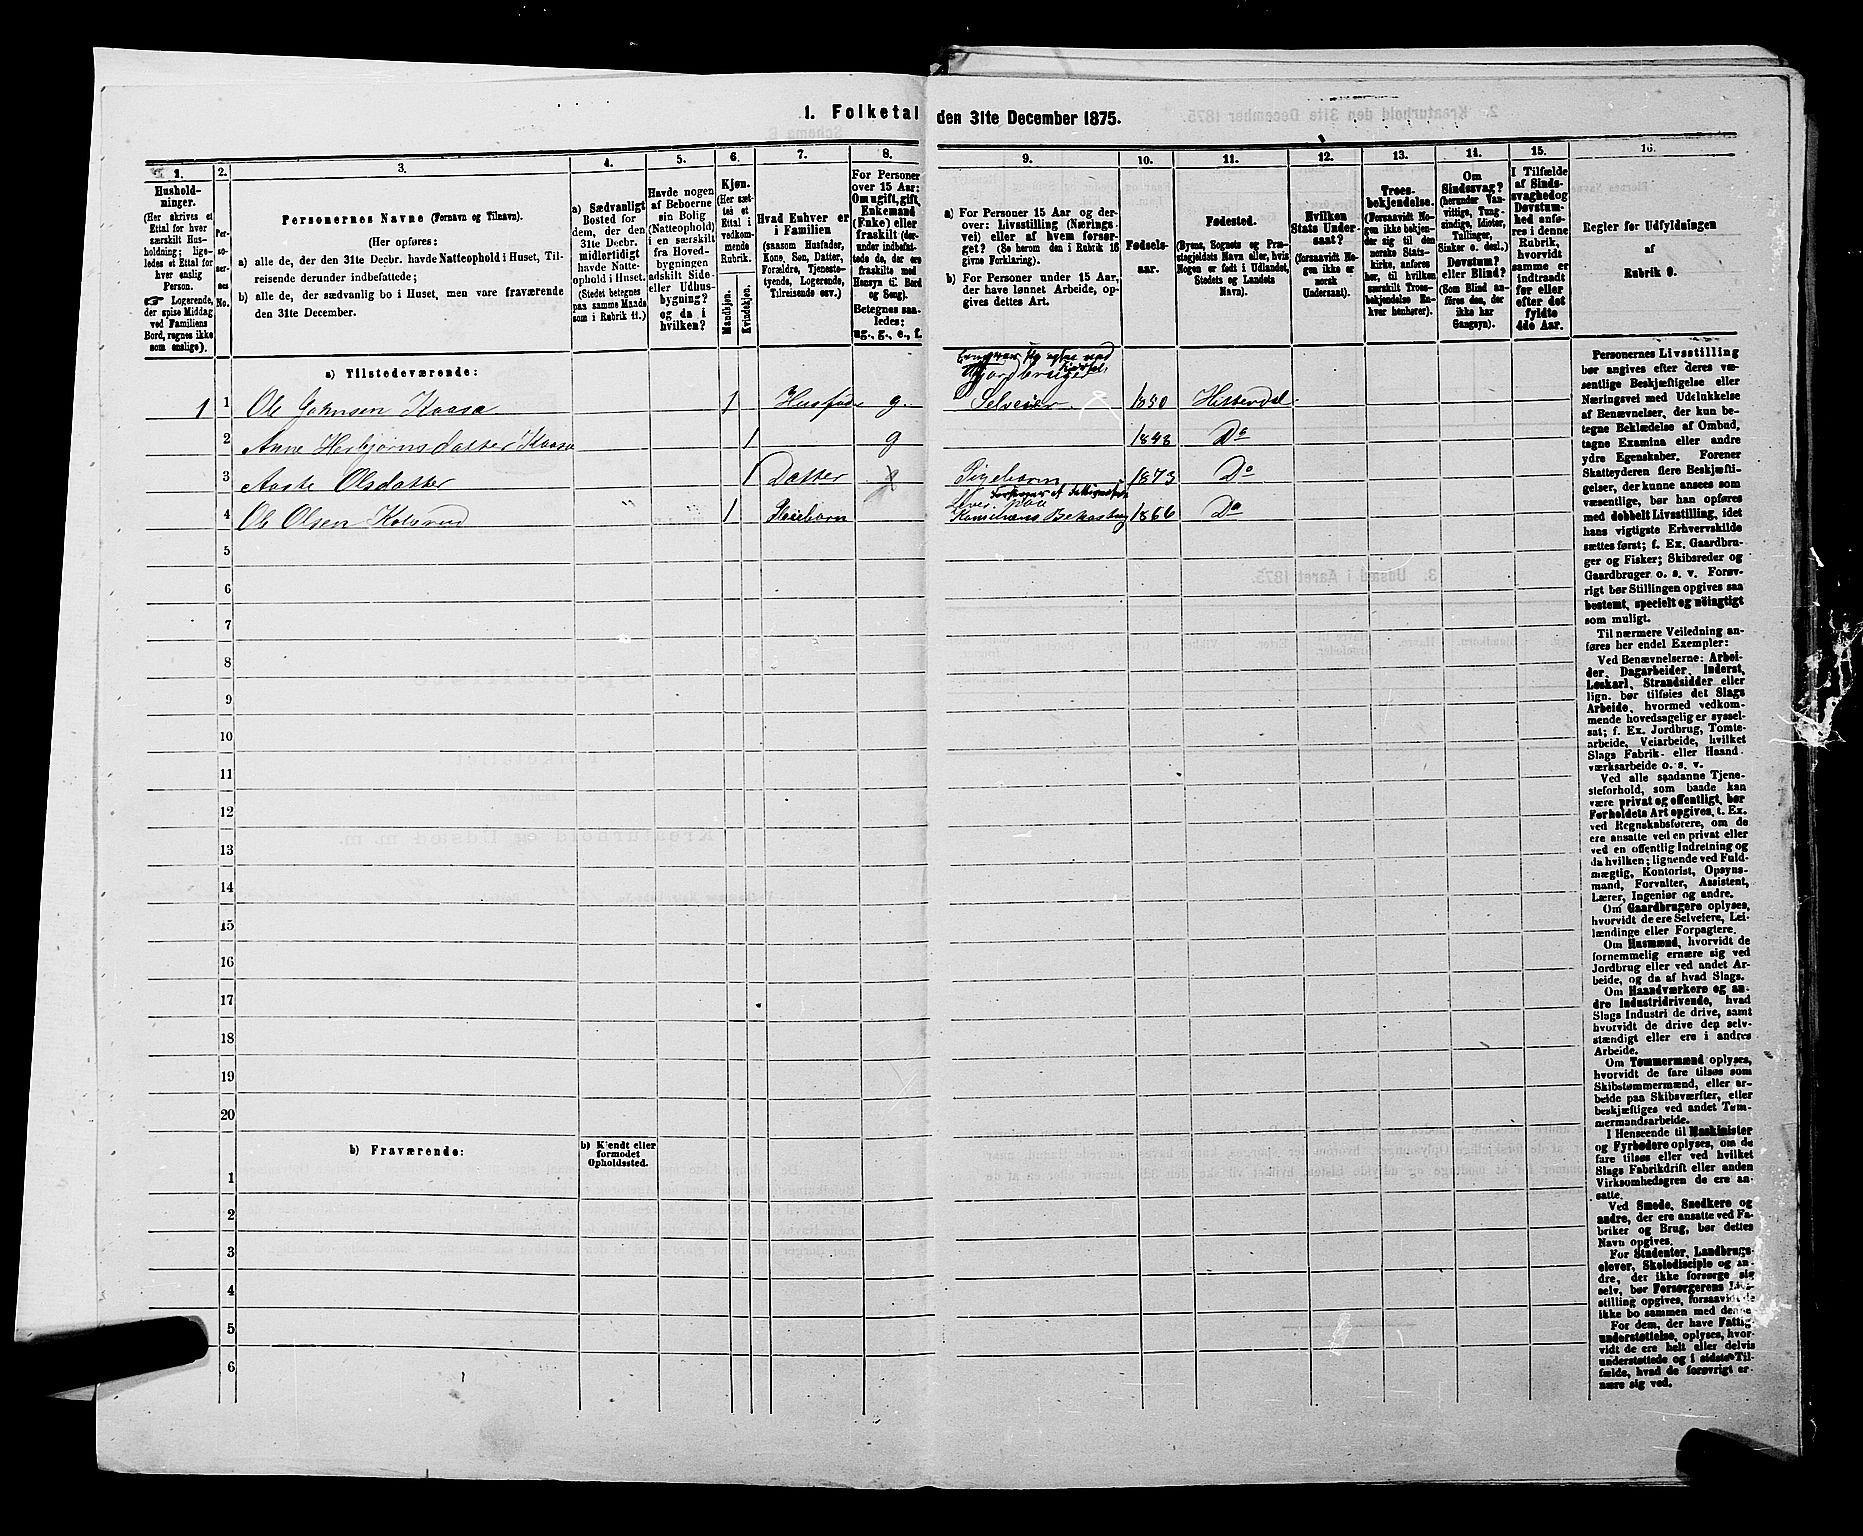 1. Folketal den 31te December 1875.
1. 2. 3. 4. 5. 6. 7. 8. 9. 10. 11. 12. 13. 14. 15. 16.
Hushold-
ninger.
(Her skrives et
Ettal for hver
særskilt Hus-
holdning; lige-
ledes et Ettal for
hver enslig
Person.
☞ Logerende,
der spise Middag
ved Familiens
Bord, regnes ikke
som enslige).
Per-
so-
ner-
nes
No.
Personernes Navne (Fornavn og Tilnavn).
(Her opføres:
a) alle de, der den 31te Decbr. havde Natteophold i Huset, Til-
reisende derunder indbefattede;
b) alle de, der sædvanlig bo i Huset, men vare fraværende
den 31te December.
a) Sædvanligt
Bosted for
dem, der den
31te Decbr.
midlertidigt
havde Natte-
ophold i Huset.
(Stedet betegnes
paa samme Maade
som i Rubrik 11.)
Havde nogen
af Beboerne
sin Bolig
(Natteophold)
i en særskilt
fra Hoved-
bygningen
adskilt Side-
eller Udhus-
bygning?
og da i
hvilken?
Kjøn.
(Her sæt-
tes et
Ettal i
vedkom-
mende
Rubrik.
Mandkjøn.
Kvindekjøn.
Hvad Enhver er
i Familien
(saasom Husfader,
Kone, Søn, Datter,
Forældre, Tjeneste-
tyende, Logerende,
Tilreisende osv.)
For Personer
over 15 Aar:
Om ugift, gift,
Enkemand
(Enke) eller
fraskilt (der-
under indbefat-
tede de, der ere
fraskilte med
Hensyn til Bord
og Seng).
Betegnes saa-
ledes:
ug., g., e., f.
a) For Personer 15 Aar og der-
over: Livsstilling (Nærings-
vei) eller af hvem forsør-
get? (Se herom den i Rubrik 16
givne Forklaring).
b) For Personer under 15 Aar,
der have lønnet Arbeide, op-
gives dettes Art.
Fødsels-
aar.
Fødested.
(Byens, Sognets og Præ-
stegjeldets Navn eller, hvis
Nogen er født i Udlandet,
Stedets og Landets
Navn).
Hvilken
Stats Under-
saat?
(forsaavidt No-
gen ikke er
norsk
Undersaat).
Troes-
bekjendelse.
(Forsaavidt No-
gen ikke bekjen-
der sig til den
norske Stats-
kirke, anføres
her, til hvilken
særskilt Troes-
bekjendelse En-
hver henhører).
Om
Sindssvag?
(herunder Van-
vittige, Tung-
sindige, Idioter,
Tullinger,
Sinker o. desl.)
Døvstum?
eller Blind?
(Som Blind an-
føres de, der
ikke har
Gangsyn).
I Tilfælde
af Sinds-
svaghed og
Døvstum-
hed anfø-
res i denne
Rubrik,
hvorvidt
samme er
indtraadt
før eller
efter det
fyldte
4de Aar.
Regler for Udfyldningen
af
Rubrik 9.
a) Tilstedeværende:
Jordbruger
1 1 Ole Johnsen Kaasa 1 Husfader g. Selveier. 1850 Hitterdal
2 Anne Herbjørnsdatter Kaasa 1 g 1848 Do
3 Aaste Olsdatter 1 Datter Pigebarn 1873 Do
4 Ole Olsen 1 Pleiebarn 1866 Do
5
6
7
8
9
10
11
12
13
14
15
16
17
18
19
20
b) Fraværende:
b) Kjendt eller
formodet
Opholdssted.
1
2
3
4
5
6
Personernes Livsstilling
bør angives efter deres væ-
sentlige Beskjæftigelse eller
Næringsvei med Udelukkelse
af Benævnelser, der kun be-
tegne Beklædelse af Ombud,
tagne Examina eller andre
ydre Egenskaber. Forener
Skatteyderen flere Beskjæfti-
gelser, der kunne ansees som
væsentlige, bør han opføres
med dobbelt Livsstilling, idet
hans vigtigste Erhvervskilde
sættes først; f. Ex. Gaardbru-
ger og Fisker; Skibsreder og
Gaardbruger o. s. v. Forøv-
rigt bør Stillingen opgives saa
bestemt, specielt og nøiagtigt
som muligt.
Til nærmere Veiledning an-
føres her endel Exempler:
Ved Benævnelserne: Arbei-
der, Dagarbeider, Inderst,
Løskarl, Strandsidder eller
lign. bør tilføies det Slags
Arbeide, hvormed vedkom-
mende hovedsagelig er syssel-
sat; f. Ex. Jordbrug, Tomte-
arbeide, Veiarbeide, hvilket
Slags Fabrik- eller Haand-
værksarbeide o. s. v.
Ved alle saadanne Tjene-
steforhold, som baade kan
være privat og offentligt, bør
Forholdets Art opgives, t. Ex.
ved Regnskabsførere, om de
ere ansatte ved en privat eller
ved en offentlig Indretning og
da hvilken; lignende ved Fuld-
mægtig, Kontorist, Opsyns-
mand, Forvalter, Assistent,
Lærer, Ingeniør og andre.
Om Gaardbrugere oplyses,
hvorvidt de ere Selveiere, Lei-
lændinge eller Forpagtere.
Om Husmænd, hvorvidt de
fornemmelig ernære sig ved
Jordbrug eller ved andet Ar-
beide, og da af hvad Slags.
Om Haandværkere og an-
dre Industridrivende, hvad
Slags Industri de drive, samt
hvorvidt de drive den selv-
stændigt eller ere i andres
Arbeide.
Om Tømmermænd oplyses,
hvorvidt de fare tilsøs som
Skibstømmermænd, eller ar-
beide paa Skibsværfter, eller
beskjæftiges ved andet Tøm-
mermandsarbeide.
I Henseende til Maskinister
og Fyrbødere oplyses, om de
fare tilsøs eller ved hvilket
Slags Fabrikdrift eller anden
Virksomhedsgren de ere an-
satte.
Ved Smede, Snedkere og
andre, der ere ansatte ved Fa-
briker og Brug, bør dettes
Navn opgives.
For Studenter, Landbrugs-
elever, Skoledisciple og an-
dre, der ikke forsørge sig
selv, bør Forsørgerens Liv-
stilling opgives, forsaavidt de
ikke bo sammen med denne.
For dem, der have Fattig-
understøttelse, oplyses, hvor-
vidt de ere helt eller delvis
understøttede og i sidste Til-
fælde, hvad de forøvrigt er-
nære sig ved.